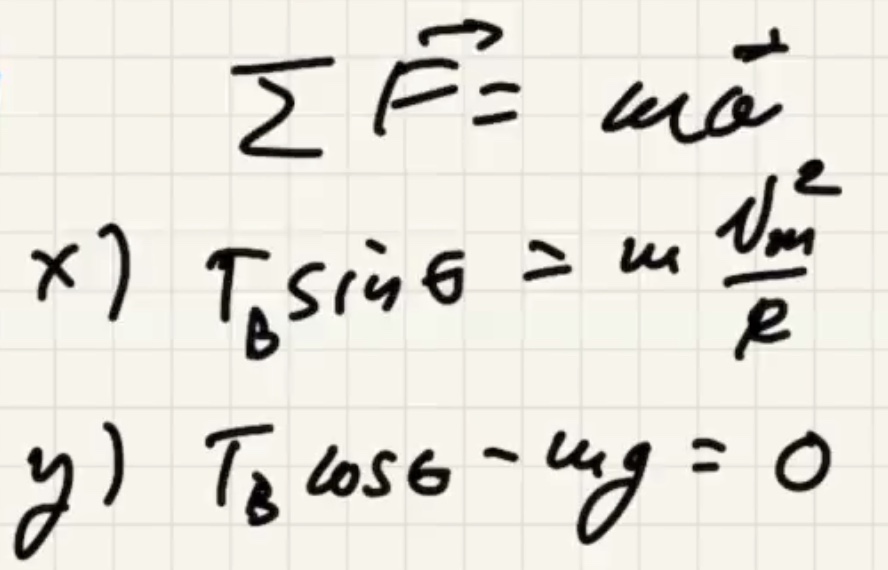 ∑ F⃗ = ma⃗
x) T_B sinθ = m v_m²/R
y) T_B cosθ - mg = 0